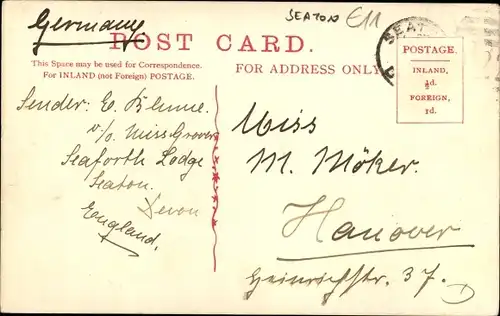 Germany
SEATON £11
POST CARD.
This Space may be used for Correspondence.
For INLAND (not Foreign) POSTAGE.
FOR ADDRESS ONLY
SEAT
POSTAGE.
INLAND,
½d.
FOREIGN,
1d.
Sender: E. Blume.
c/o Miss Grover
Seaforth Lodge
Seaton.
Devon
England.
Miss
M. Möker.
Hanover
Heinrichstr. 37.